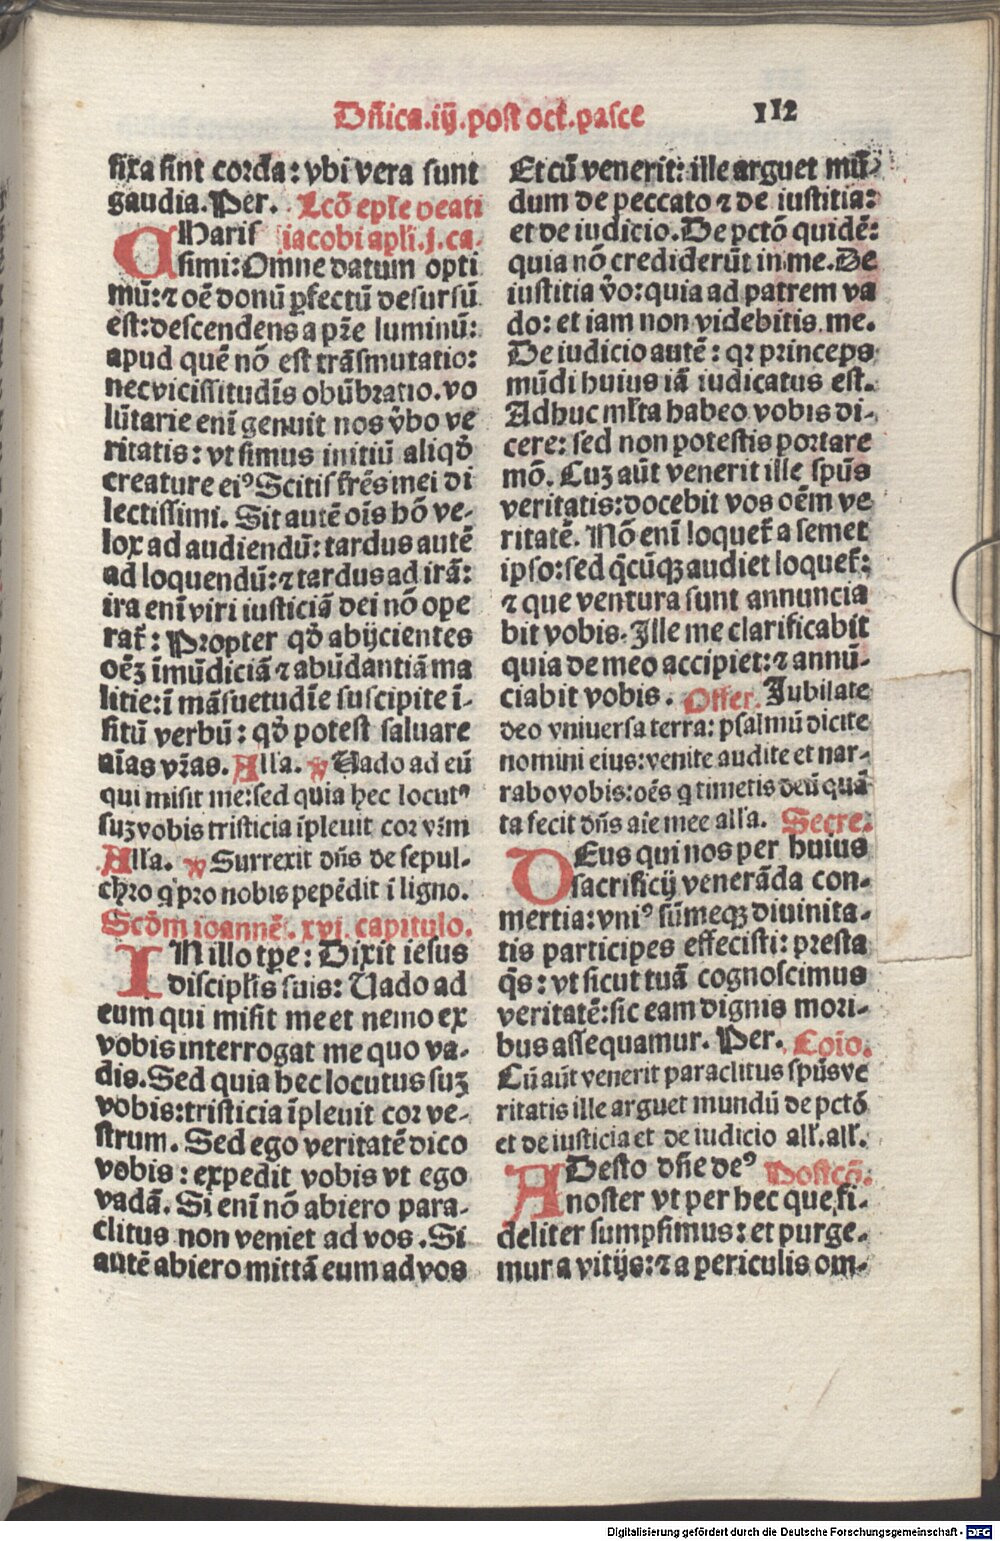 Dñica.iij.post oct̉.pasce 112
fixa sint corda: vbi vera sunt
gaudia. Per. Lcō epl̄e beati
CHaris iacobi apl̄i.j.ca.
simi: Omne datum opti
mū: ⁊ oē donū ꝑfectū desursū
est: descendens a pr̄e luminū:
apud quē nō est trāsmutatio:
nec vicissitudīs obūbratio. vo
lūtarie enī genuit nos v̄bo ve
ritatis: vt simus initiū aliqd̄
creature eiꝰ Scitis fr̄es mei di
lectissimi. Sit autē oīs hō ve-
lox ad audiendū: tardus autē
ad loquendū: ⁊ tardus ad irā:
ira enī viri iusticiā dei nō ope
rat̉: Propter qd̄ abijcientes
oēꝫ īmūdiciā ⁊ abūdantiā ma
litie: ī māsuetudīe suscipite ī-
sitū verbū: qd̄ potest saluare
aīas vr̄as. Alla. ℣ Uado ad eū
qui misit me: sed quia hec locutꝰ
suꝫ vobis tristicia īpleuit cor vr̄m
Alla. ℣ Surrexit dn̄s de sepul-
chro q̄ pro nobis pepēdit ī ligno.
Scd̄m ioannē. xvi. capitulo.
IN illo tp̄e: Dixit iesus
discipl̄is suis: Uado ad
eum qui misit me et nemo ex
vobis interrogat me quo va-
dis. Sed quia hec locutus suꝫ
vobis: tristicia īpleuit cor ve-
strum. Sed ego veritatē dico
vobis: expedit vobis vt ego
vadā. Si enī nō abiero para-
clitus non veniet ad vos. Si
autē abiero mittā eum ad vos
Et cū venerit: ille arguet mū-
dum de peccato ⁊ de iustitia:
et de iudicio. De pctō quidē:
quia nō crediderūt in me. De
iustitia v̄o: quia ad patrem va
do: et iam non videbitis me.
De iudicio autē: qꝛ princeps
mūdi huius iā iudicatus est.
Adhuc ml̄ta habeo vobis di-
cere: sed non potestis portare
mō. Cuꝫ aūt venerit ille spūs
veritatis: docebit vos oēm ve
ritatē. Nō enī loquet̉ a semet
ipso: sed q̄cūqꝫ audiet loquet̉:
⁊ que ventura sunt annuncia
bit vobis. Ille me clarificabit
quia de meo accipiet: ⁊ annū-
ciabit vobis. Offer. Iubilate
deo vniuersa terra: psalmū dicite
nomini eius: venite audite et nar-
rabo vobis: oēs q̄ timetis deū quā
ta fecit dn̄s aīe mee all̄a. Secre.
DEus qui nos per huius
sacrificij venerāda con-
mertia: vniꝰ sūmeqꝫ diuinita-
tis participes effecisti: presta
q̄s: vt sicut tuā cognoscimus
veritatē: sic eam dignis mori-
bus assequamur. Per. Coio.
Cū aūt venerit paraclitus spūs ve
ritatis ille arguet mundū de pctō
et de iusticia et de iudicio all̄. all̄.
ADesto dn̄e deꝰ Postcō.
noster vt per hec que fi-
deliter sumpsimus: et purge-
mur a vitijs: ⁊ a periculis om-
Digitalisierung gefördert durch die Deutsche Forschungsgemeinschaft - DFG